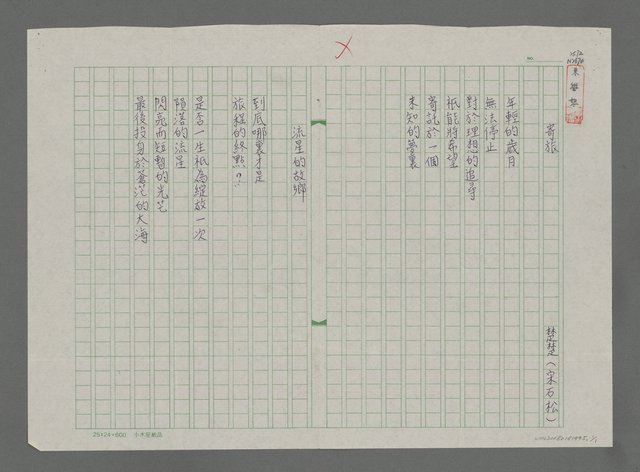 寄旅
楚楚（宋石松）
年輕的歲月
無法停止
對於理想的追尋
祇能將希望
寄託於一個
未知的夢裏
流星的故鄉
到底哪裏才是
旅程的終點？
是否一生祇為綻放一次
隕落的流星
閃亮而短暫的光芒
最後投身於蒼茫的大海
NO.
25×24=600 小木屋紙品